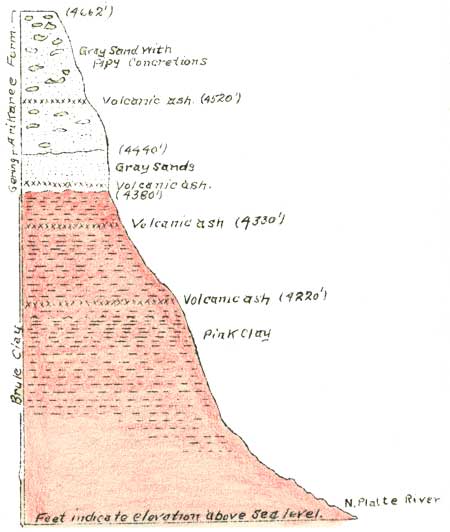 (4662')
Gray Sand with
Pipy Concretions
Volcanic ash. (4520')
(4440')
Gray Sands
Volcanic ash.
(4380')
Volcanic ash (4330')
Volcanic ash (4220')
Pink Clay
N. Platte River
Feet indicate elevation above Sea level.
Gering - Arikaree Form.
Brule Clay